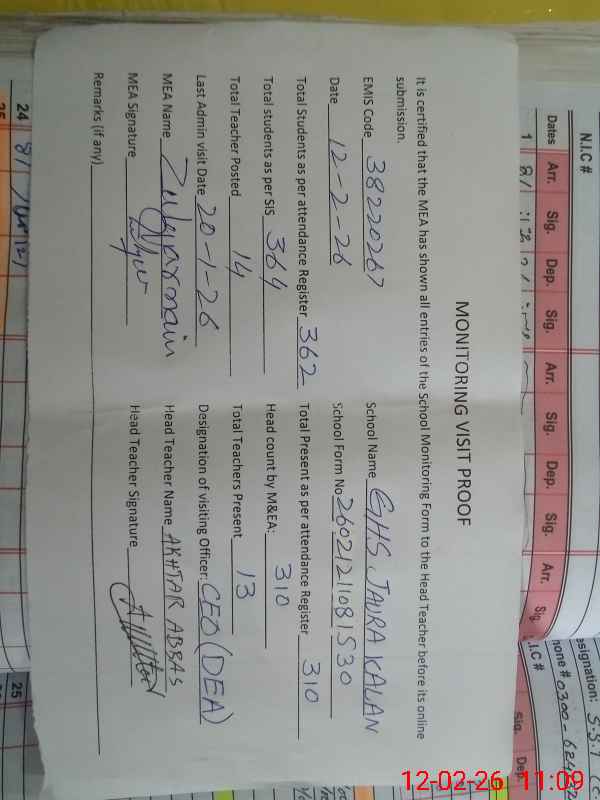 MONITORING VISIT PROOF
It is certified that the MEA has shown all entries of the School Monitoring Form to the Head Teacher before its online
submission.
EMIS Code 38220267 School Name GHS JAURA KALAN
Date 12-2-26 School Form No 26021211081530
Total Students as per attendance Register 362 Total Present as per attendance Register 310
Total students as per SIS 364 Head count by M&EA: 310
Total Teacher Posted 14 Total Teachers Present 13
Last Admin visit Date 20-1-26 Designation of visiting Officer: CEO (DEA)
MEA Name Head Teacher Name AKHTAR ABBAS
MEA Signature Head Teacher Signature
Remarks (if any)
N.I.C #
Dates Arr. Sig. Dep. Sig. Arr. Sig. Dep. Sig. Arr. Sig.
1 8/
24 8/
25
esignation: S.S.T
hone # 0300-624
.I.C #
Sig. Dep.
12-02-26 11:09